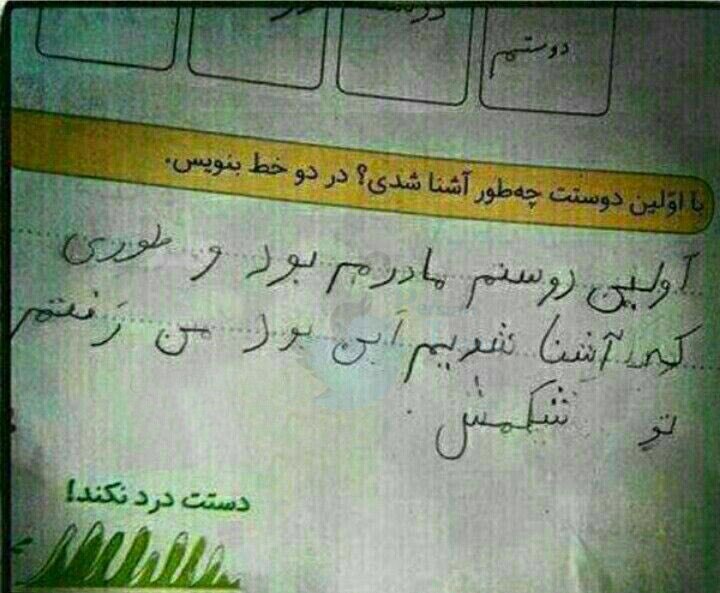 دوستیم
با اوّلین دوستت چه‌طور آشنا شدی؟ در دو خط بنویس.
اولین دوستم مادرم بود و طوری
که آشنا شدیم این بود من رفتم
تو شکمش.
دستت درد نکند!